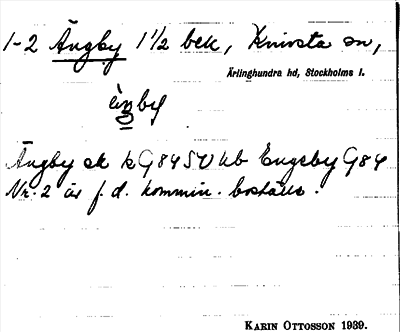 1-2 Ängby 1 1/2 bek, Knivsta sn,
Ärlinghundra hd, Stockholms l.
Ängby sk k G 84 SV Ub Engeby G 84
Nr. 2 är f. d. kommin. boställe.
KARIN OTTOSSON 1939.